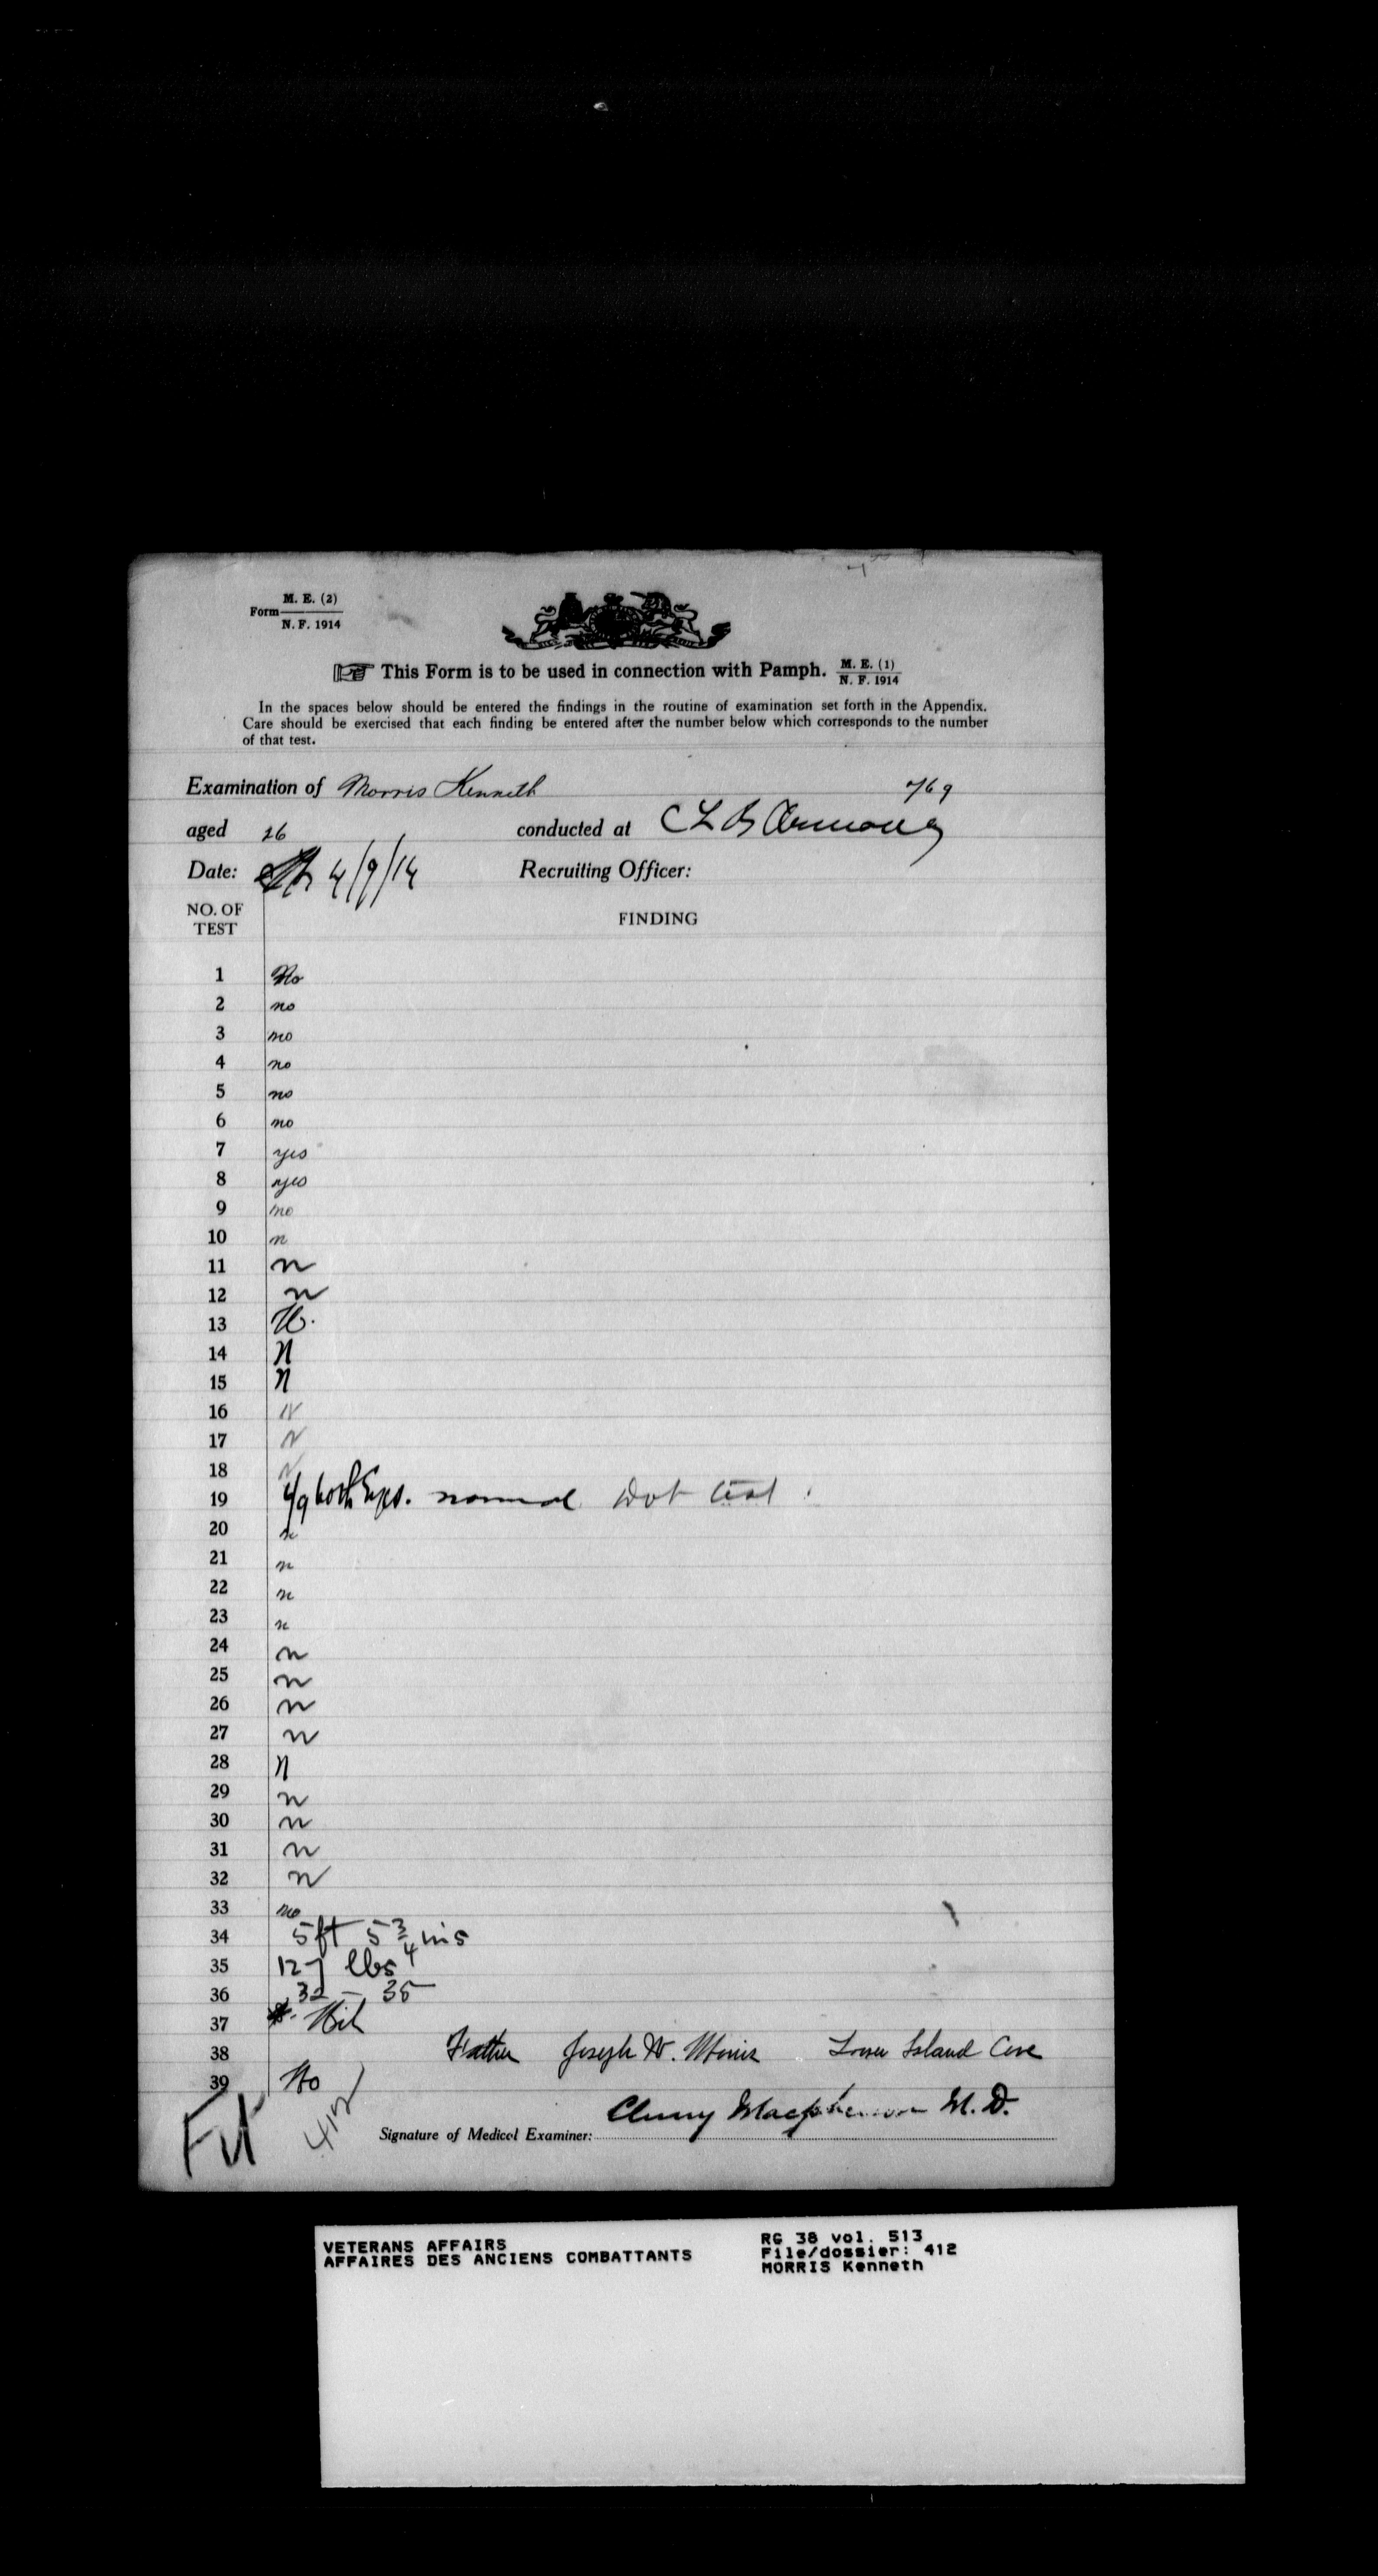 Form M. E. (2)
N. F. 1914
This Form is to be used in connection with Pamph. M. E. (1)
N. F. 1914
In the spaces below should be entered the findings in the routine of examination set forth in the Appendix.
Care should be exercised that each finding be entered after the number below which corresponds to the number
of that test.
Examination of Morris Kenneth 769
aged 26 conducted at C L B Armoury
Date: 4/9/14 Recruiting Officer:
NO. OF
TEST
FINDING
1 No
2 no
3 no
4 no
5 no
6 no
7 yes
8 yes
9 no
10 n
11 n
12 n
13
14 N
15 N
16 N
17 N
18 N
19 6/9 both Eyes. normal Dot test
20 n
21 n
22 n
23 n
24 n
25 n
26 n
27 n
28 N
29 n
30 n
31 n
32 n
33 no
34 5 ft 5 3/4 ins
35 127 lbs
36 32 - 35
37 Nil
38 Father Joseph W. Morris Lower Island Cove
39 No
Fit 412
Signature of Medical Examiner: Cluny Macpherson M. D.
VETERANS AFFAIRS
AFFAIRES DES ANCIENS COMBATTANTS
RG 38 vol. 513
File/dossier: 412
MORRIS Kenneth